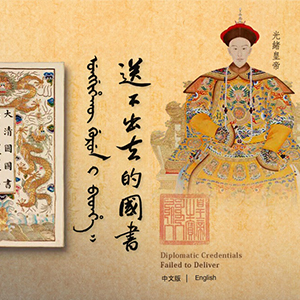 大清國國書
送不出去的國書
光緒皇帝
Diplomatic Credentials
Failed to Deliver
中文版 | English